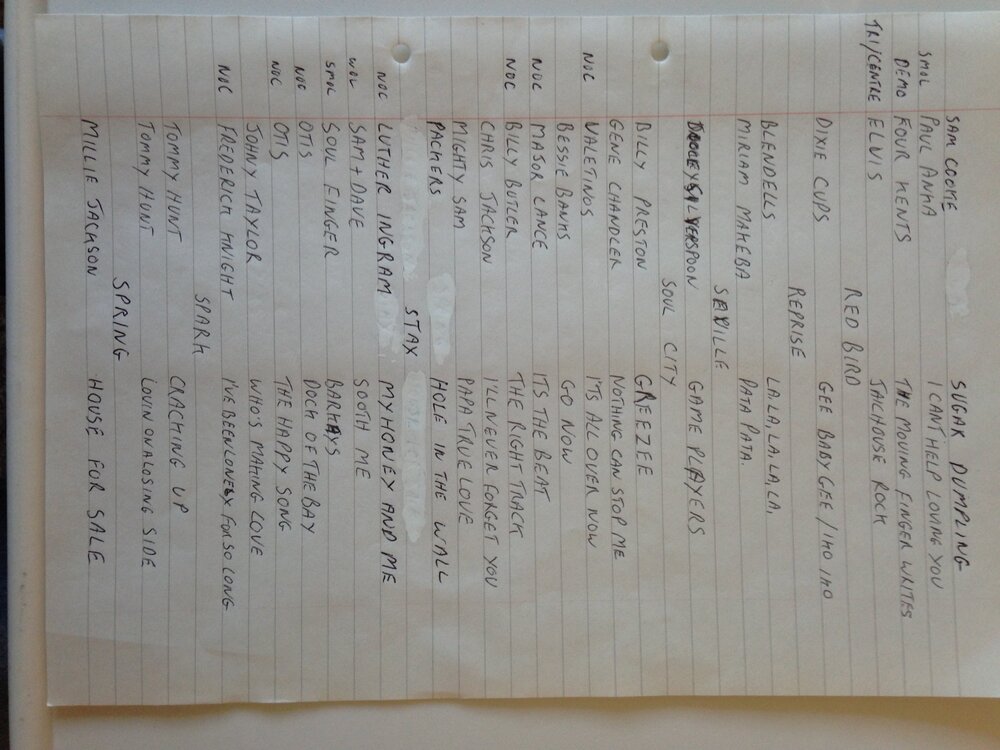 SAM COOKE SUGAR DUMPLING
SMOL PAUL ANKA I CANT HELP LOVING YOU
DEMO FOUR KENTS THE MOVING FINGER WRITES
TRI/CENTRE ELVIS JAILHOUSE ROCK
RED BIRD
DIXIE CUPS GEE BABY GEE / IKO IKO
REPRISE
BLENDELLS LA, LA, LA, LA, LA,
MIRIAM MAKEBA PATA PATA.
SAVILLE
DOOLEY SILVERSPOON GAME PLAYERS
SOUL CITY
BILLY PRESTON GREEZEE
GENE CHANDLER NOTHING CAN STOP ME
NOC VALETINOS ITS ALL OVER NOW
BESSIE BANKS GO NOW
NOC MAJOR LANCE ITS THE BEAT
NOC BILLY BUTLER THE RIGHT TRACK
CHRIS JACKSON I'LL NEVER FORGET YOU
MIGHTY SAM PAPA TRUE LOVE
PACKERS HOLE IN THE WALL
STAX
NOC LUTHER INGRAM MY HONEY AND ME
WOL SAM + DAVE SOOTH ME
SMOL SOUL FINGER BARKAYS
NOC OTIS DOCK OF THE BAY
NOC OTIS THE HAPPY SONG
JOHNY TAYLOR WHO'S MAKING LOVE
NOC FREDERICK KNIGHT I'VE BEEN LONELY FOR SO LONG
SPARK
TOMMY HUNT CRACKING UP
TOMMY HUNT LOVIN ON A LOSING SIDE
SPRING
MILLIE JACKSON HOUSE FOR SALE